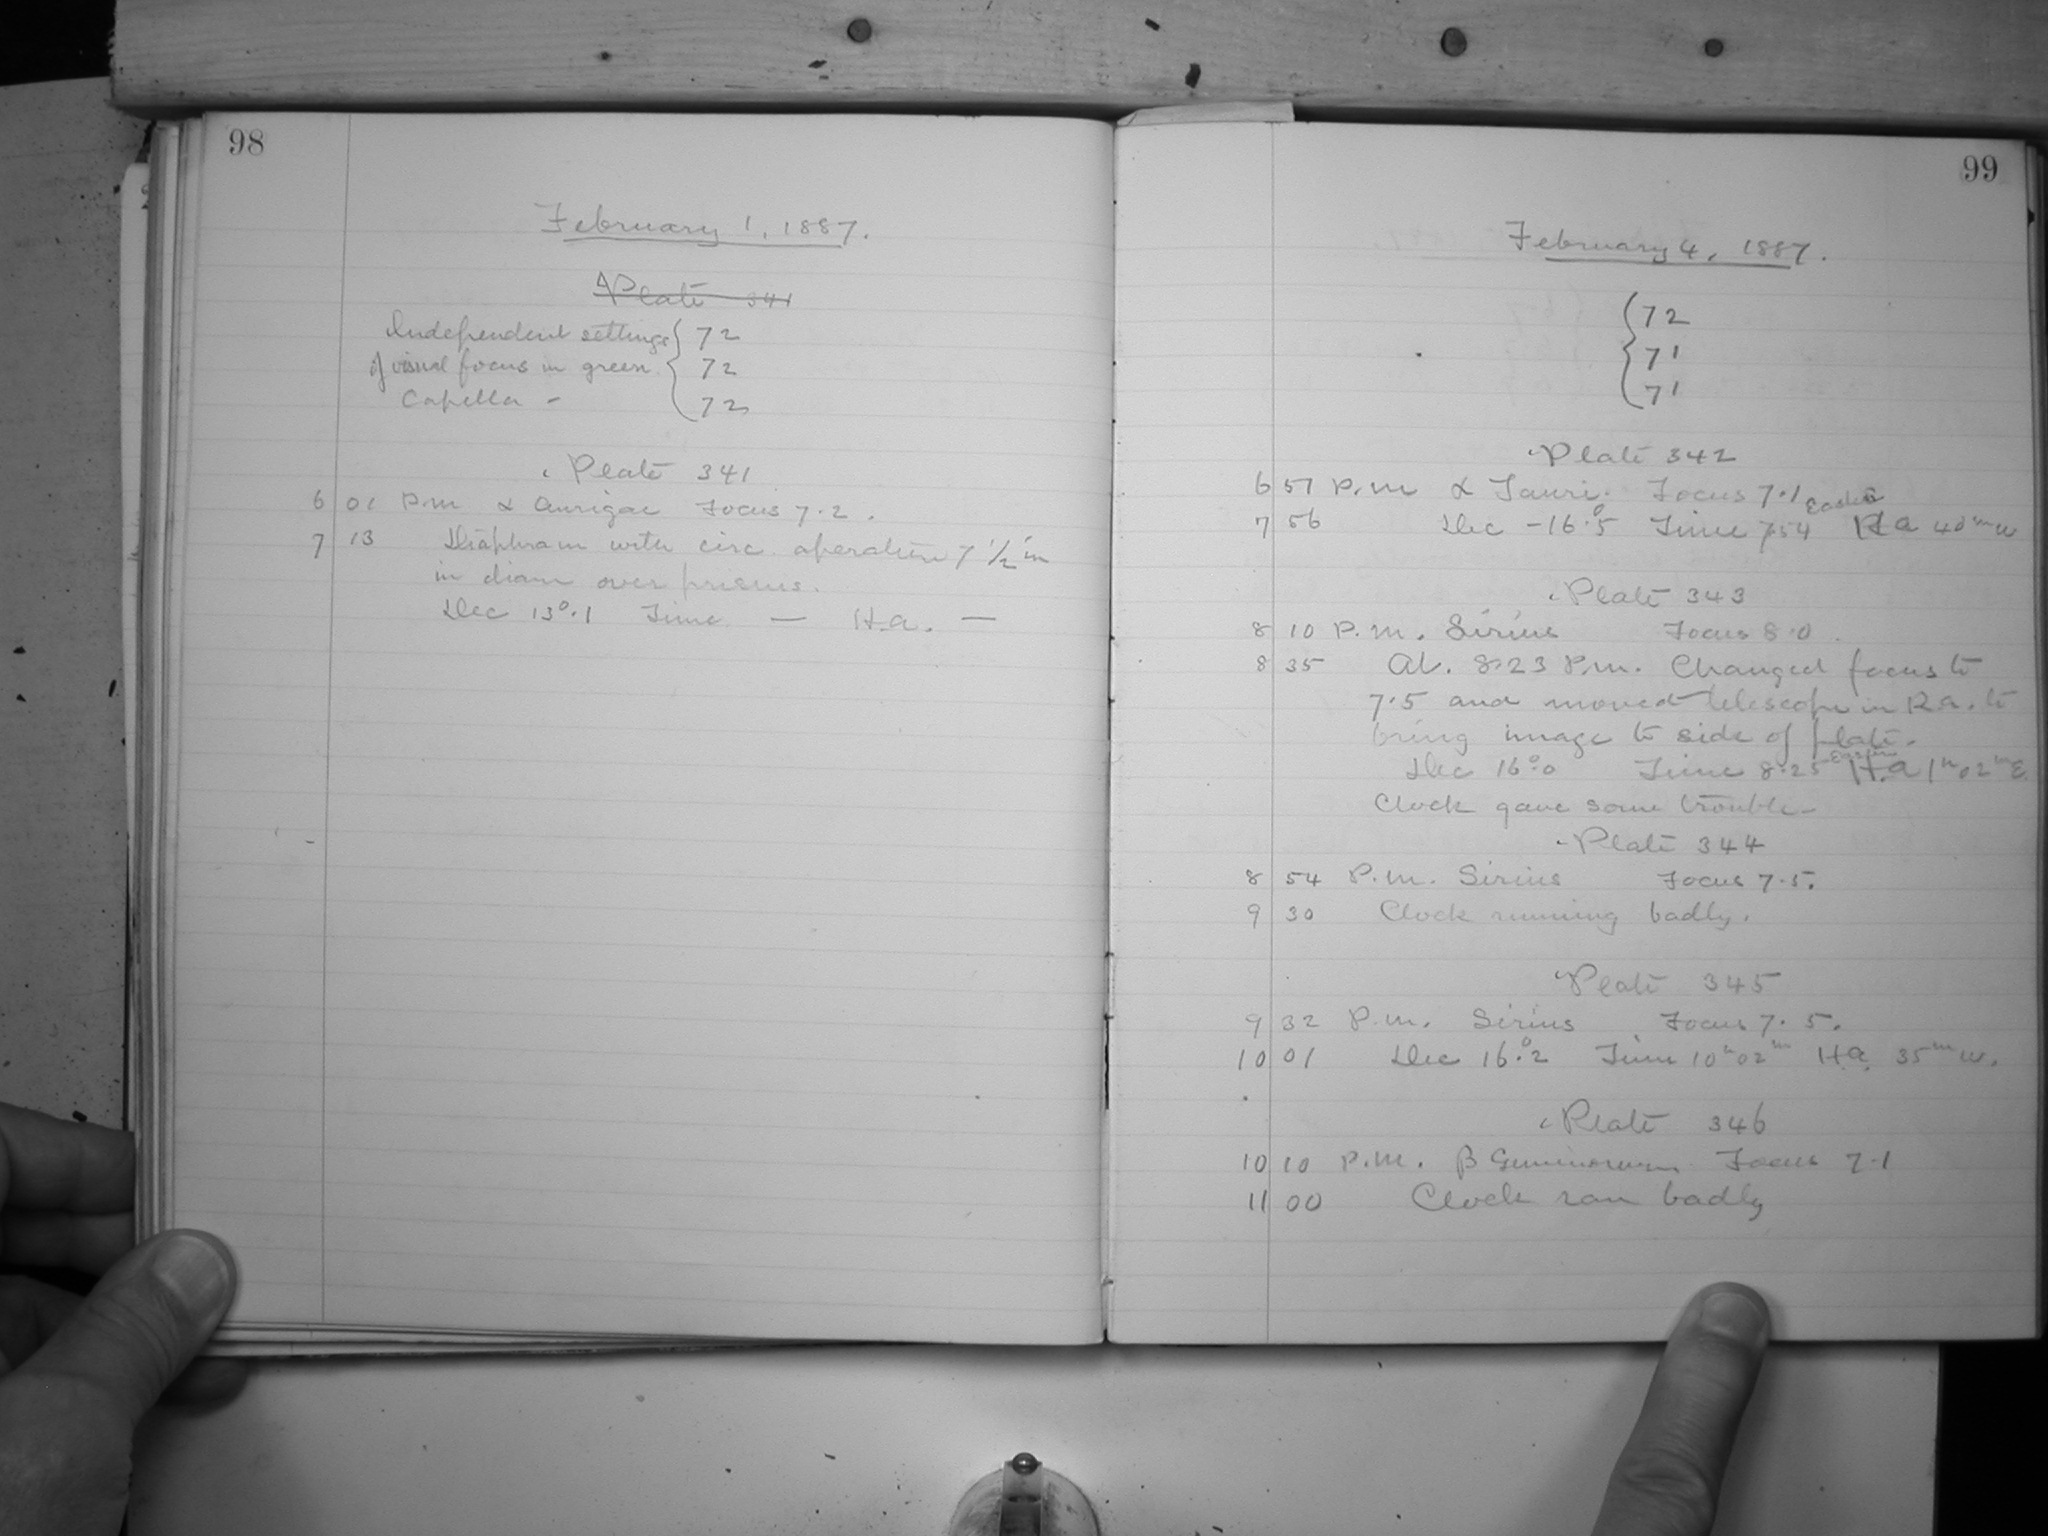 98
February 1, 1887.
Plate 341
Independent settings { 72
of visual focus in green. { 72
Capella - { 72
Plate 341
6 01 P.m α Aurigae Focus 7.2.
7 13 Diaphram with circ. aperature 7 1/2 in
in diam over prisms.
Dec 13°.1 Time — H.a. —
99
February 4, 1887.
72
71
71
Plate 342
6 51 P.m α Tauri. Focus 7.1
Eastern
7 56 Dec -16°.5 Time 7 54 H a 40m w
Plate 343
8 10 P.m. Sirius Focus 8.0.
8 35 At. 8:23 P.m. Changed focus to
7.5 and moved telescope in R a. to
bring image to side of plate.
Eastern
Dec 16°.0 Time 8.25 H.a 1h 02m E
Clock gave some trouble-
Plate 344
8 54 P.m. Sirius Focus 7.5.
9 30 Clock running badly.
Plate 345
9 32 P.m. Sirius Focus 7.5.
10 01 Dec 16°.2 Time 10h 02m H a 35m w.
Plate 346
10 10 P.m. β Geminorum Focus 7.1
11 00 Clock ran badly